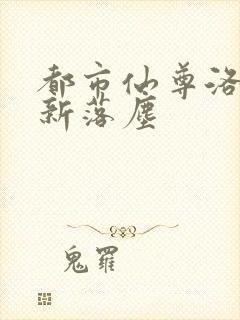 都市仙尊洛
新落塵
鬼羅